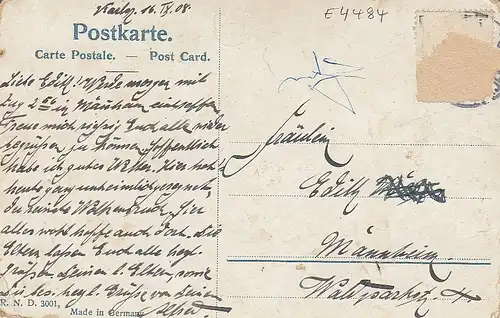 Karlsr. 16. IX. 08.
E4484
Postkarte.
Carte Postale. — Post Card.
Liebe Edith! Werde morgen mit
Zug 2 in Mannheim eintreffen
Freue mich riesig Euch alle wieder
begrüßen zu können. Hoffentlich
habe ich gutes Wetter. Hier hat
heute ganz unheimlich geregnet,
der reinste Wolkenbruch. Hier
alles wohl hoffe auch dort. Die
Eltern lassen Euch alle herzl.
Grüßen. Deinen l. Eltern sowie
Dir bes. herzl. Grüße von Deinem
Alfred.
Fräulein
Edith
Mannheim
Waldparkstr.
R. N. D. 3001,
Made in Germany